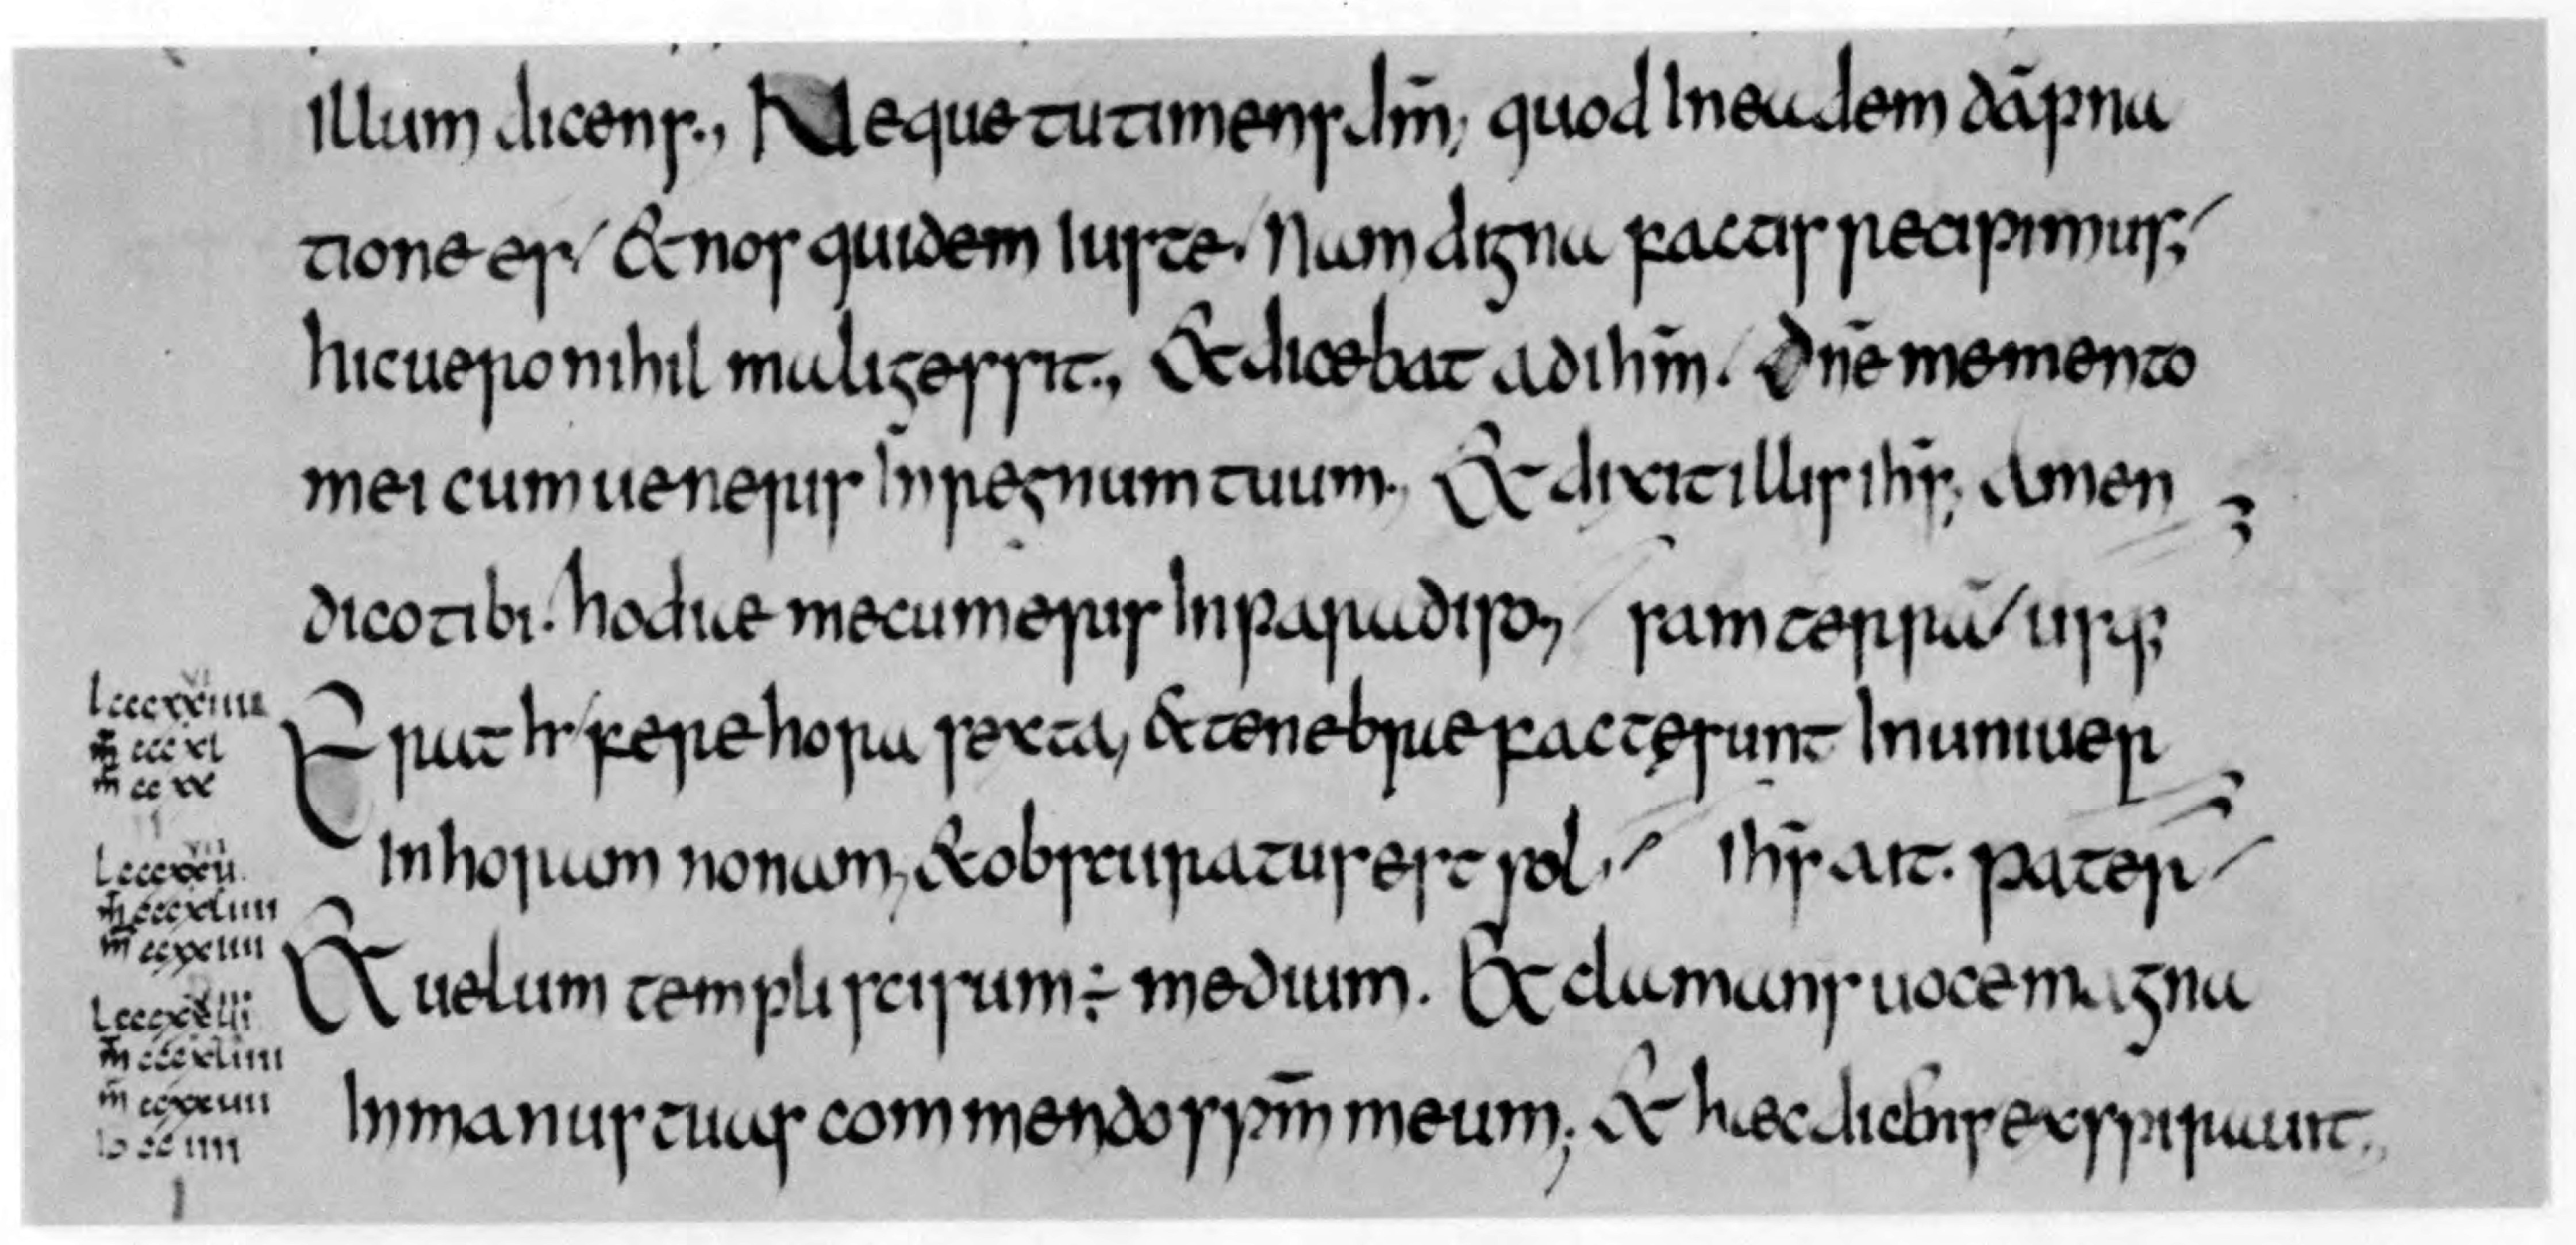 illum dicens., Neque tu timens dm̄, quod in eadem dāpna
tione es / & nos quidem iuste. Nam digna factis recipimus;
hic uero nihil mali gessit., & dicebat ad ihm̄. Dnē memento
mei cum ueneris in regnum tuum., & dixit illis ihs̄; Amen
dico tibi. hodiae mecum eris in paradiso, / sam terrā / usq;
Erat hr / fere hora sexta, & tenebrae factę sunt in uniuer
in horam nonam, & obscuratus est sol., / ihs̄ ait. pater /
& uelum templi scisum ÷ medium. & clamans uoce magna
in manus tuas commendo spm̄ meum; & haec dicens exspirauit.,
lcccxxiiii
m̄ cccxl
m̄ ccxx
m̄ cccxliiii
m̄ cccxliiii
io cciiii